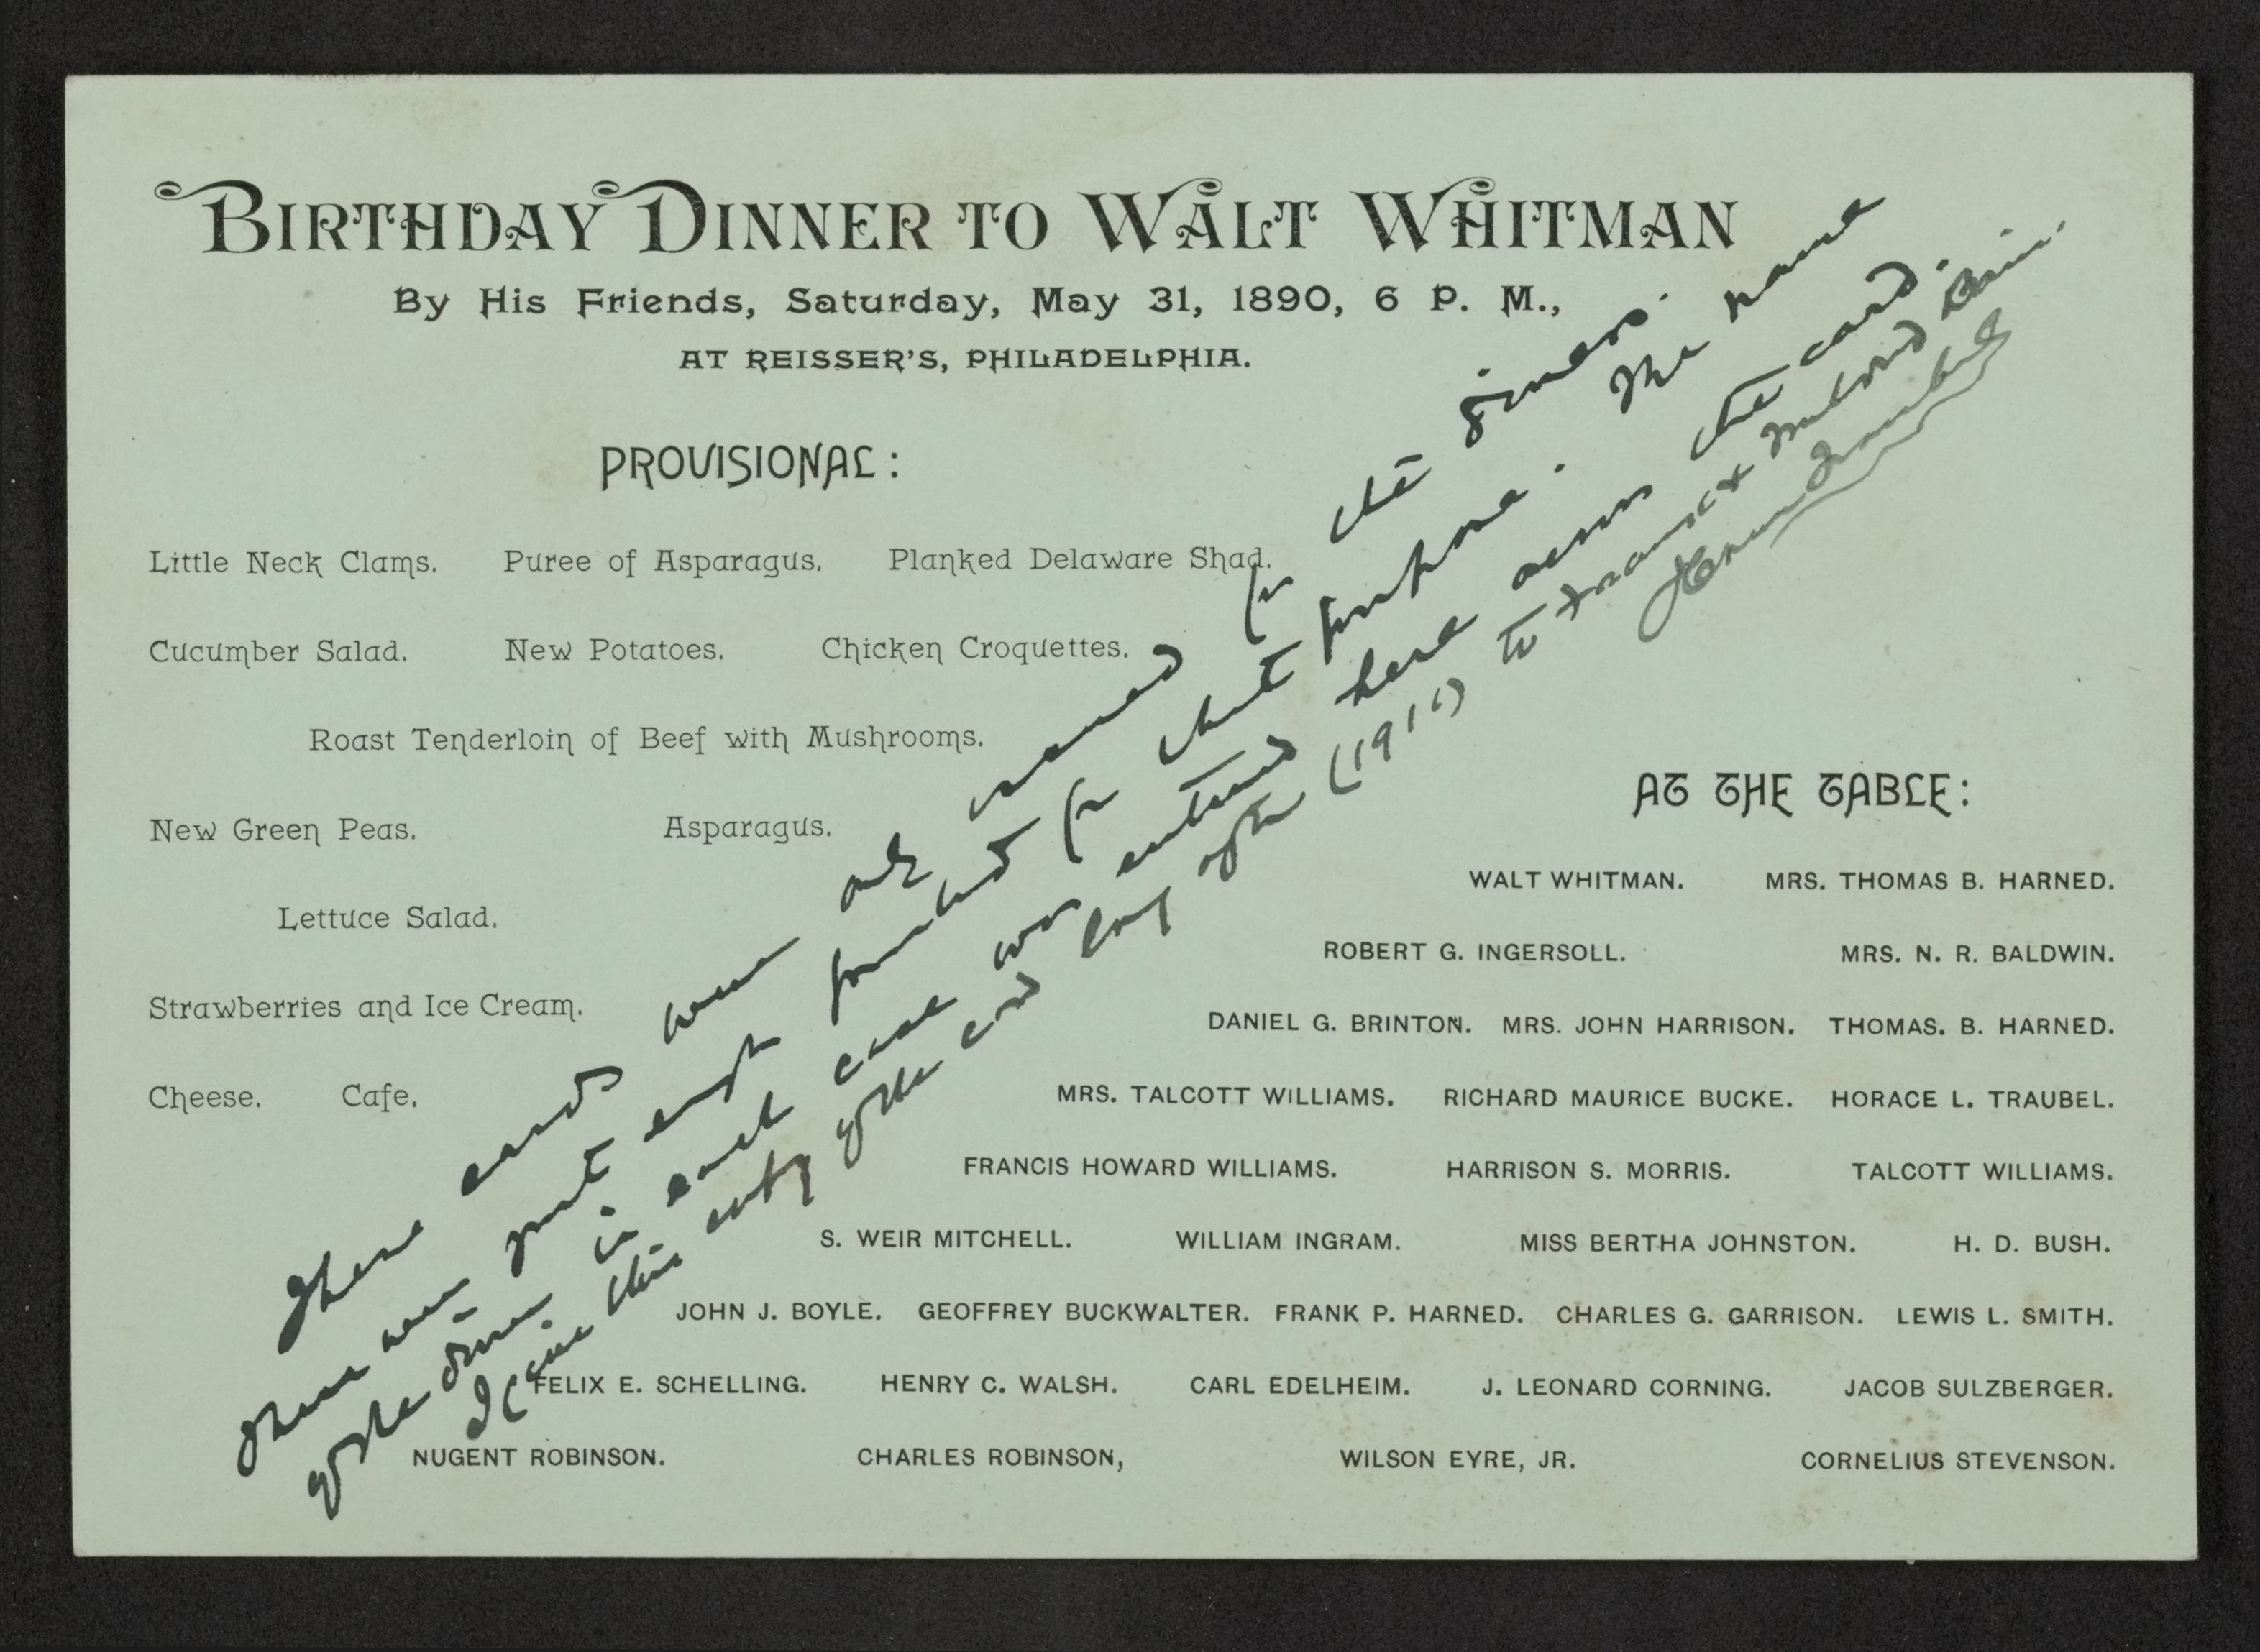 BIRTHDAY DINNER TO WALT WHITMAN
By His Friends, Saturday, May 31, 1890, 6 P. M.,
AT REISSER'S, PHILADELPHIA.
PROVISIONAL:
Little Neck Clams. Puree of Asparagus. Planked Delaware Shad.
Cucumber Salad. New Potatoes. Chicken Croquettes.
Roast Tenderloin of Beef with Mushrooms.
New Green Peas. Asparagus.
Lettuce Salad.
Strawberries and Ice Cream.
Cheese. Cafe.
AT THE TABLE:
WALT WHITMAN. MRS. THOMAS B. HARNED.
ROBERT G. INGERSOLL. MRS. N. R. BALDWIN.
DANIEL G. BRINTON. MRS. JOHN HARRISON. THOMAS. B. HARNED.
MRS. TALCOTT WILLIAMS. RICHARD MAURICE BUCKE. HORACE L. TRAUBEL.
FRANCIS HOWARD WILLIAMS. HARRISON S. MORRIS. TALCOTT WILLIAMS.
S. WEIR MITCHELL. WILLIAM INGRAM. MISS BERTHA JOHNSTON. H. D. BUSH.
JOHN J. BOYLE. GEOFFREY BUCKWALTER. FRANK P. HARNED. CHARLES G. GARRISON. LEWIS L. SMITH.
FELIX E. SCHELLING. HENRY C. WALSH. CARL EDELHEIM. J. LEONARD CORNING. JACOB SULZBERGER.
NUGENT ROBINSON. CHARLES ROBINSON, WILSON EYRE, JR. CORNELIUS STEVENSON.
These cards were only for the diners.
There were just enough printed for that purpose. The name
of the diner in each case was entered here across the card.
I give this copy of the card long after (1911) to Frank & Mildred Bain.
Horace Traubel